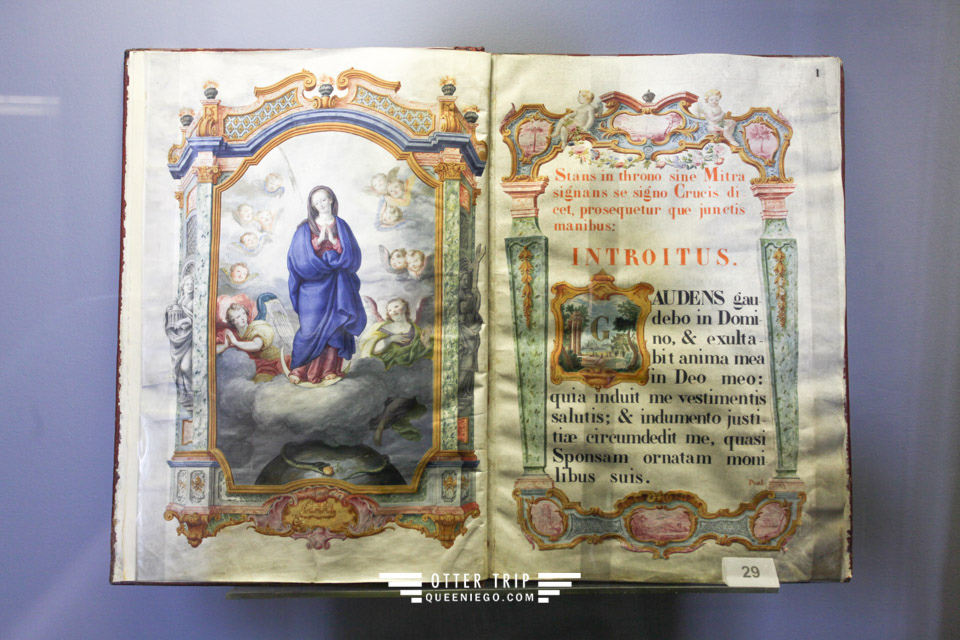 1
Stans in throno sine Mitra
signans se signo Crucis di
cet, prosequetur que junctis
manibus:
INTROITUS.
GAUDENS gau-
debo in Domi-
no, & exulta-
bit anima mea
in Deo meo:
quia induit me vestimentis
salutis; & indumento justi-
tiæ circumdedit me, quasi
Sponsam ornatam moni
libus suis.
Psal.
29
OTTER TRIP
QUEENIEGO.COM